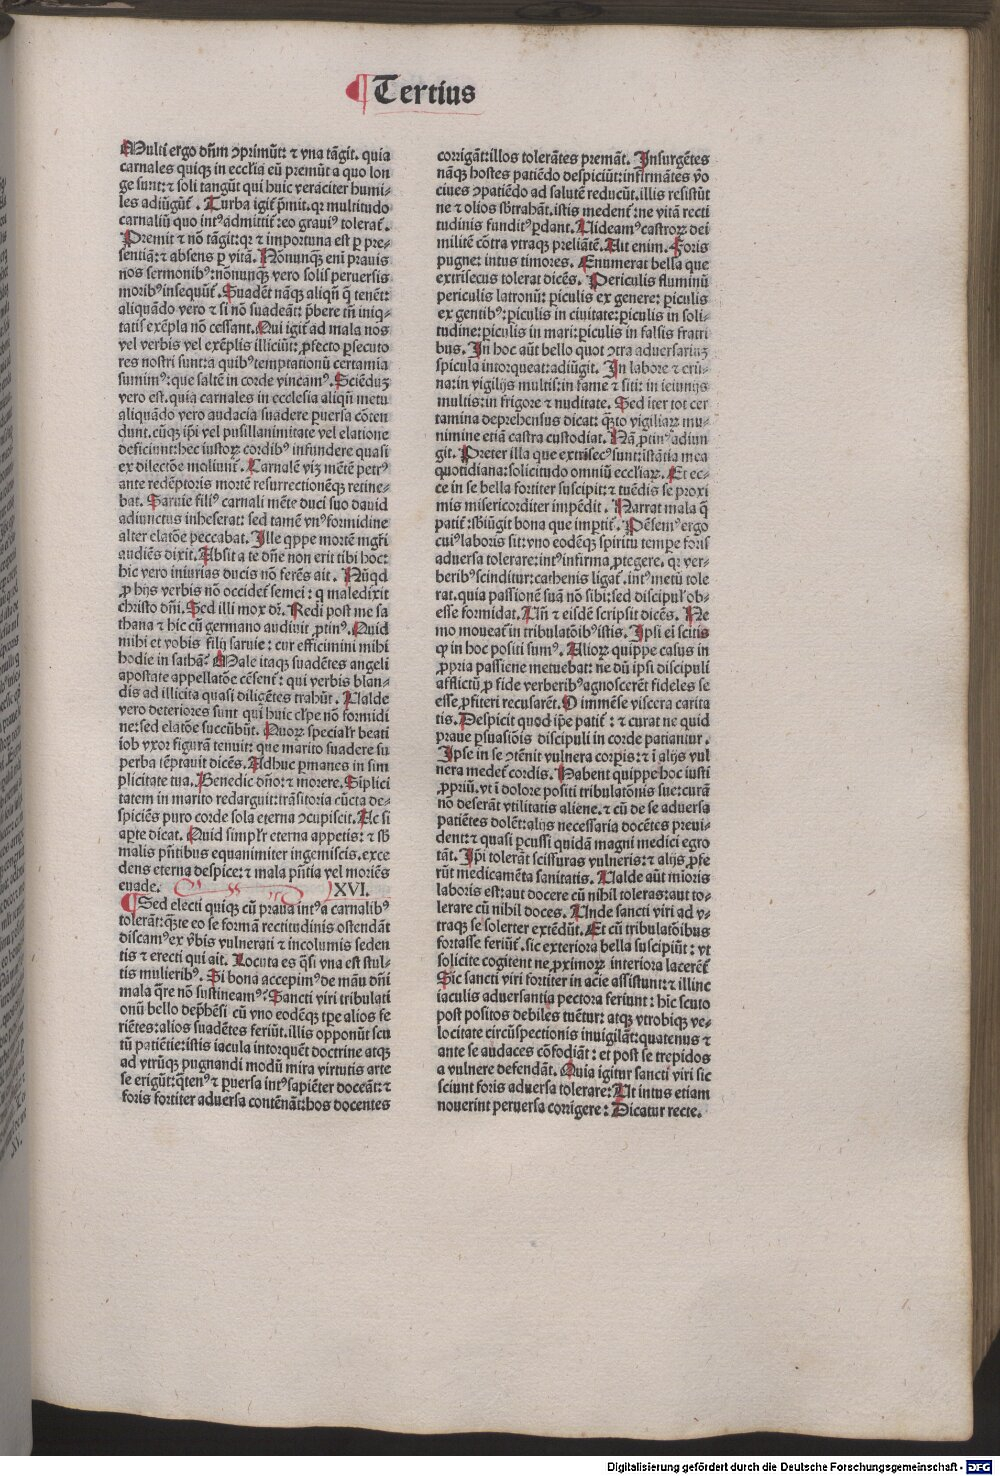 Tertius
Multi ergo dñm ɔprimũt: ⁊ vna tãgit. quia
carnales quiqꝫ in eccľia eũ premũt a quo lon
ge sunt: ⁊ soli tangũt qui huic veraciter humi/
les adiũgũt᷑. Turba igit᷑ p̃mit. qꝛ multitudo
carnaliũ quo intꝰ admittit᷑: eo grauiꝰ tolerat᷑.
Premit ⁊ nõ tãgit: qꝛ ⁊ importuna est ꝑ pre/
sentiã: ⁊ absens ꝑ vitã. Nõnunqꝫ eni prauis
nos sermonibꝰ: nõnunqꝫ vero solis peruersis
moribꝰ insequũt᷑. Suadẽt nãqꝫ aliqñ q̃ tenẽt:
aliquãdo vero ⁊ si nõ suadeãt: p̃bere tñ iniq/
tatis exẽpla nõ cessant. Qui igit᷑ ad mala nos
vel verbis vel exẽplis illiciũt: ꝓfecto ꝑsecuto
res nostri sunt: a quibꝰ temptationũ certamia
sumimꝰ: que saltẽ in corde vincamꝰ. Sciẽduꝫ
vero est. quia carnales in ecclesia aliqñ metu
aliquãdo vero audacia suadere ꝑuersa cõten
dunt. cũqꝫ ip̃i vel pusillanimitate vel elatione
deficiunt: hec iustoꝝ cordibꝰ infundere quasi
ex dilectõe moliunt᷑. Carnalẽ viꝫ mẽtẽ petrꝰ
ante redẽptoris mortẽ resurrectionẽqꝫ retine/
bat. Saruie filiꝰ carnali mẽte duci suo dauid
adiunctus inheserat: sed tamẽ vnꝰ formidine
alter elatõe peccabat. Ille q̃ppe mortẽ mgr̃i
audiẽs dixit. Absit a te dñe non erit tibi hoc:
hic vero iniurias ducis nõ ferẽs ait. Nũqd
ꝓ hijs verbis nõ occidet᷑ semei: q̃ maledixit
christo dñi. Sed illi mox dꝛ̃. Redi post me sa
thana ⁊ hic cũ germano audiuit ꝓtinꝰ. Quid
mihi et vobis filij saruie: cur efficimini mihi
hodie in sathã? Male itaqꝫ suadẽtes angeli
apostate appellatõe cẽsent᷑: qui verbis blan/
dis ad illicita quasi diligẽtes trahũt. Ualde
vero deteriores sunt qui huic cľpe nõ formidi
ne: sed elatõe succũbũt. Quoꝝ specialr̃ beati
iob vxor figurã tenuit: que marito suadere su
perba tẽptauit dicẽs. Adhuc ꝑmanes in sim
plicitate tua. Benedic dño: ⁊ morere. Siplici
tatem in marito redarguit: trãsitoria cũcta de/
spiciẽs puro corde sola eterna ɔcupiscit. Ac si
aꝑte dicat. Quid simplr̃ eterna appetis: ⁊ sb̃
malis pñtibus equanimiter ingemiscis. exce
dens eterna despice: ⁊ mala pñtia vel moriẽs
euade. XVI.
Sed electi quiqꝫ cũ praua intꝰ a carnalibꝰ
tolerãt: q̃ꝫte eo se formã rectitudinis ostendãt
discamꝰ ex ṽbis vulnerati ⁊ incolumis seden
tis ⁊ erecti qui ait. Locuta es q̃si vna est stul/
tis mulieribꝰ. Si bona accepimꝰ de mãu dñi
mala q̃re nõ sustineamꝰ? Sancti viri tribulati
onũ bello dep̃hẽsi cũ vno eodẽqꝫ tꝑe alios fe
riẽtes: alios suadẽtes feriũt. illis opponũt scu
tũ patiẽtie: istis iacula intorquẽt doctrine atqꝫ
ad vtrũqꝫ pugnandi modũ mira virtutis arte
se erigũt: q̃tenꝰ ⁊ ꝑuersa intꝰ sapiẽter doceãt: ⁊
foris fortiter aduersa contẽnãt: hos docentes
corrigãt: illos tolerãtes premãt. Insurgẽtes
nãqꝫ hostes patiẽdo despiciũt: infirmãtes ṽo
ciues ɔpatiẽdo ad salutẽ reducũt. illis resistũt
ne ⁊ olios sb̃trahãt. istis medent᷑: ne vitã recti
tudinis funditꝰ ꝑdant. Uideamꝰ castroꝝ dei
militẽ cõtra vtraqꝫ preliãtẽ. Ait enim. Foris
pugne: intus timores. Enumerat bella que
extrĩsecus tolerat dicẽs. Periculis fluminũ
periculis latronũ: ꝑiculis ex genere: ꝑiculis
ex gentibꝰ: ꝑiculis in ciuitate: ꝑiculis in soli/
tudine: ꝑiculis in mari: ꝑiculis in falsis fratri
bus. In hoc aũt bello quot ɔtra aduersariuꝫ
spicula intorqueat: adiũgit. In labore ⁊ eru/
na: in vigilijs multis: in fame ⁊ siti: in ieiunijs
multis: in frigore ⁊ nuditate. Sed iter tot cer
tamina deprehensus dicat: q̃ꝫto vigiliaꝝ mu/
nimine etiã castra custodiat. Nã ꝓtinꝰ adiun
git. Preter illa que extrĩsecꝰ sunt: ĩstãtia mea
quotidiana: solicitudo omniũ eccľiaꝝ. Et ec/
ce in se bella fortiter suscipit: ⁊ tuẽdis se proxi
mis misericorditer impẽdit. Narrat mala q̃
patit᷑: sb̃iũgit bona que imptit᷑. Pẽsemꝰ ergo
cuiꝰ laboris sit: vno eodẽqꝫ spiritu tempe foris
aduersa tolerare: intꝰ infirma ꝓtegere. qꝛ ver/
beribꝰ scinditur: cathenis ligat᷑. intꝰ metũ tole
rat. quia passionẽ suã nõ sibi: sed discipuľ ob/
esse formidat. Uñ ⁊ eisdẽ scripsit dicẽs. Ne
mo moueat᷑ in tribulatõibꝰ istis. Ipsi ei scitis
qꝫ in hoc positi sumꝰ. Alioꝝ quippe casus in
ꝓpria passiene metuebat: ne dũ ipsi discipuli
afflictũ ꝓ fide verberibꝰ agnoscerẽt fideles se
esse ꝓfiteri recusarẽt. O immẽse viscera carita
tis. Despicit quod ip̃e patit᷑: ⁊ curat ne quid
praue ꝑsuasiõis discipuli in corde patiantur.
Ipse in se ɔtẽnit vulnera corpis: ⁊ ĩ alijs vul
nera medet᷑ cordis. Habent quippe hoc iusti
ꝓpriũ. vt ĩ dolore positi tribulatõnis sue: curã
nõ deserãt vtilitatis aliene. ⁊ cũ de se aduersa
patiẽtes dolẽt: alijs necessaria docẽtes preui/
dent: ⁊ quasi ꝑcussi quidã magni medici egro
tãt. Ip̃i tolerãt scissuras vulneris: ⁊ alijs ꝓfe
rũt medicamẽta sanitatis. Ualde aũt mĩoris
laboris est: aut docere cũ nihil toleras: aut to/
lerare cũ nihil doces. Unde sancti viri ad v/
traqꝫ se solerter extẽdũt. Et cũ tribulatõibus
fortasse feriũt᷑. sic exteriora bella suscipiũt: vt
solicite cogitent ne ꝓximoꝝ interiora lacerẽt᷑
Sic sancti viri fortiter in acie assistunt: ⁊ illinc
iaculis aduersantia pectora feriunt: hic scuto
post positos debiles tuẽtur: atqꝫ vtrobiqꝫ ve/
locitate circũspectionis inuigilãt: quatenus ⁊
ante se audaces cõfodiãt: et post se trepidos
a vulnere defendãt. Quia igitur sancti viri sic
sciunt foris aduersa tolerare: Ut intus etiam
nouerint peruersa corrigere: Dicatur recte.
Digitalisierung gefördert durch die Deutsche Forschungsgemeinschaft - DFG